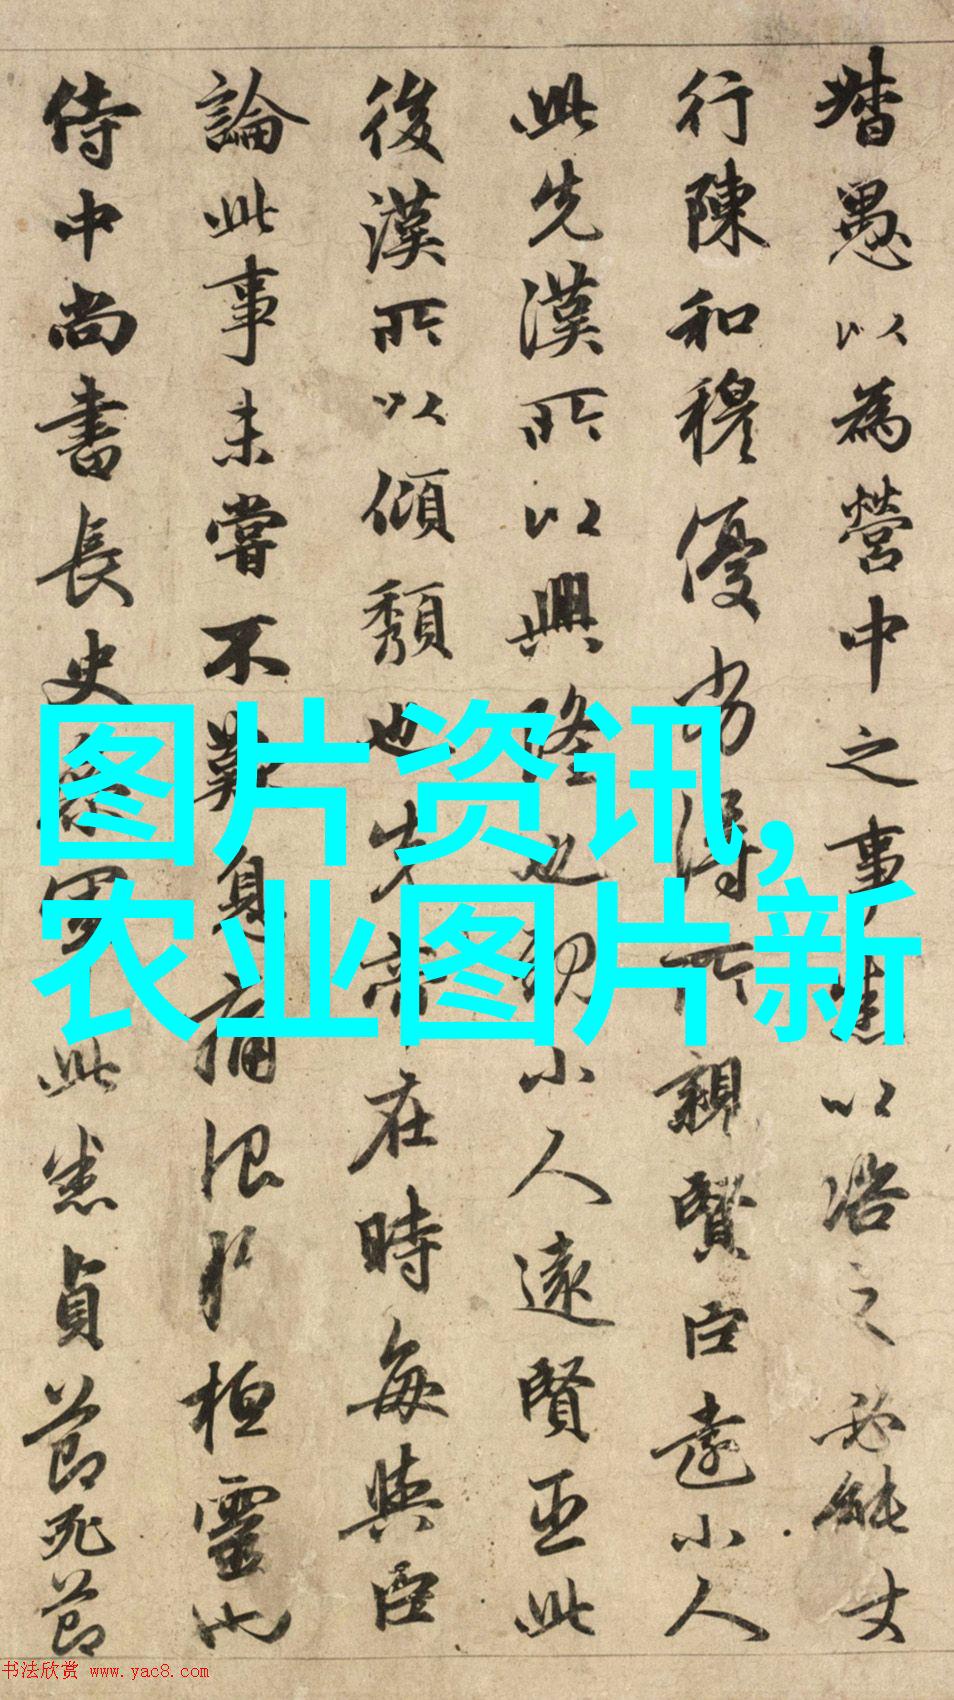 愚以為營中之事悉以咨之必能
行陳和穆優劣得所親賢臣遠小人
此先漢所以興隆也親小人遠賢臣此
後漢所以傾頹也先帝在時每與臣
論此事未嘗不歎息痛恨於桓靈也
侍中尚書長史參軍此悉貞節死節
图片资讯,
农业图片新
书法欣赏 www.yac8.com